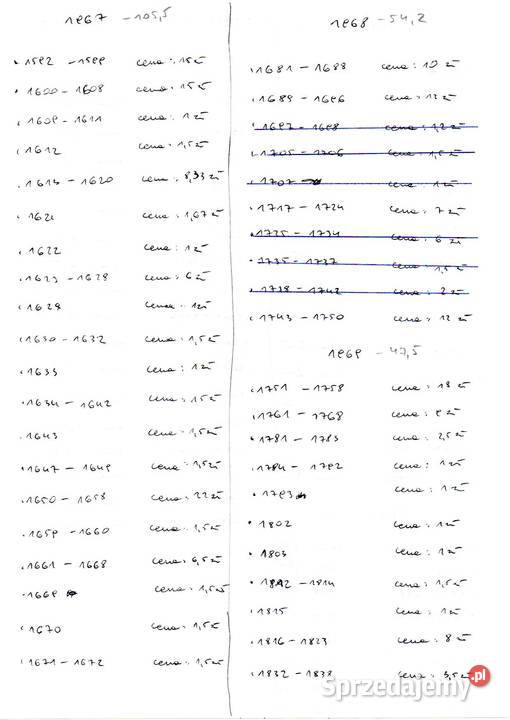 1967 - 105,5
1592 - 1599 cena: 15 zł
1600 - 1608 cena: 15 zł
1609 - 1611 cena: 1 zł
1612 cena: 1,5 zł
1613 - 1620 cena: 8,33 zł
1621 cena: 1,67 zł
1622 cena: 1 zł
1623 - 1628 cena: 6 zł
1628 cena: 1 zł
1630 - 1632 cena: 1,5 zł
1633 cena: 1 zł
1634 - 1642 cena: 15 zł
1643 cena: 1,5 zł
1647 - 1649 cena: 1,5 zł
1650 - 1658 cena: 22 zł
1659 - 1660 cena: 1,5 zł
1661 - 1668 cena: 6,5 zł
1669 cena: 1,5 zł
1670 cena: 1,5 zł
1671 - 1672 cena: 1,5 zł
1968 - 54,2
1681 - 1688 cena: 10 zł
1689 - 1696 cena: 12 zł
1697 - 1698 cena: 1,2 zł
1705 - 1706 cena: 1,5 zł
1707 cena: 1 zł
1717 - 1724 cena: 7 zł
1725 - 1734 cena: 6 zł
1735 - 1737 cena: 1,5 zł
1738 - 1742 cena: 2 zł
1743 - 1750 cena: 12 zł
1969 - 47,5
1751 - 1758 cena: 18 zł
1761 - 1768 cena: zł
1781 - 1783 cena: 2,5 zł
1784 - 1792 cena: 1 zł
1793 cena: 1 zł
1802 cena: 1 zł
1803 cena: 1 zł
1812 - 1814 cena: 1,5 zł
1815 cena: 1 zł
1816 - 1823 cena: 8 zł
1832 - 1838 cena: 3,5 zł
Sprzedajemy.pl